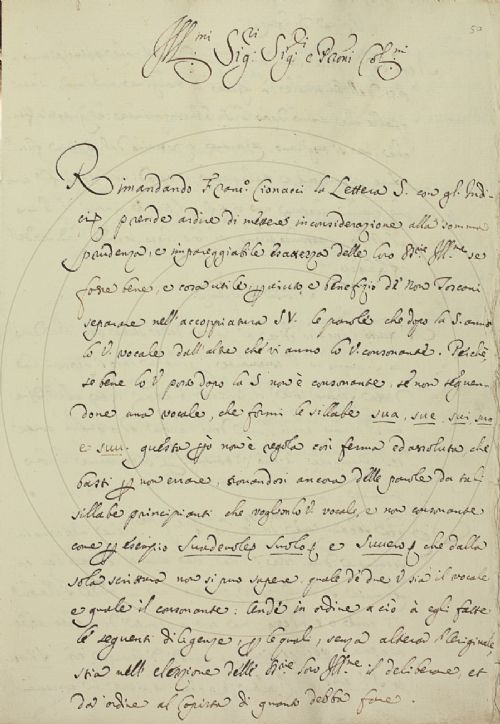 50
Ill.mi Sig.ri Sig.ri e Pr̃oni Col.mi
Rimandando Franc.o Cionacci la Lettera S. con gl'Indi-
ci, prende ardire di mettere in considerazione alla somma
prudenza, e impareggiabile esattezza delle loro SS.rie Ill.me se
fosse bene, e cosa utile p aiuto, e benefizio de' Non Toscani
separare nell'accoppiatura SV. le parole che dopo la S. anno
lo V. vocale dall'altre che vi anno lo V. consonante. Perchè
se bene lo V. posto dopo la S. non è consonante, se non seguen-
done una vocale, che formi le sillabe sua, sue, sui, suo
e suu. questa però non è regola così ferma ed assoluta, che
basti p non errare, trovandosi ancora delle parole da tali
sillabe principianti che vogliono lo V. vocale, e non consonante
come p esempio Suadevole, Suolo, e Suvero, che dalla
sola scrittura non si può sapere quale de' due V sia il vocale
e quale il consonante: Onde in ordine a ciò à egli fatte
le seguenti diligenze, p le quali, senza alterar l'Originale
stia nell'elezione delle SS.rie loro Ill.me il deliberare, et
dar ordine al Copista di quanto debba fare.